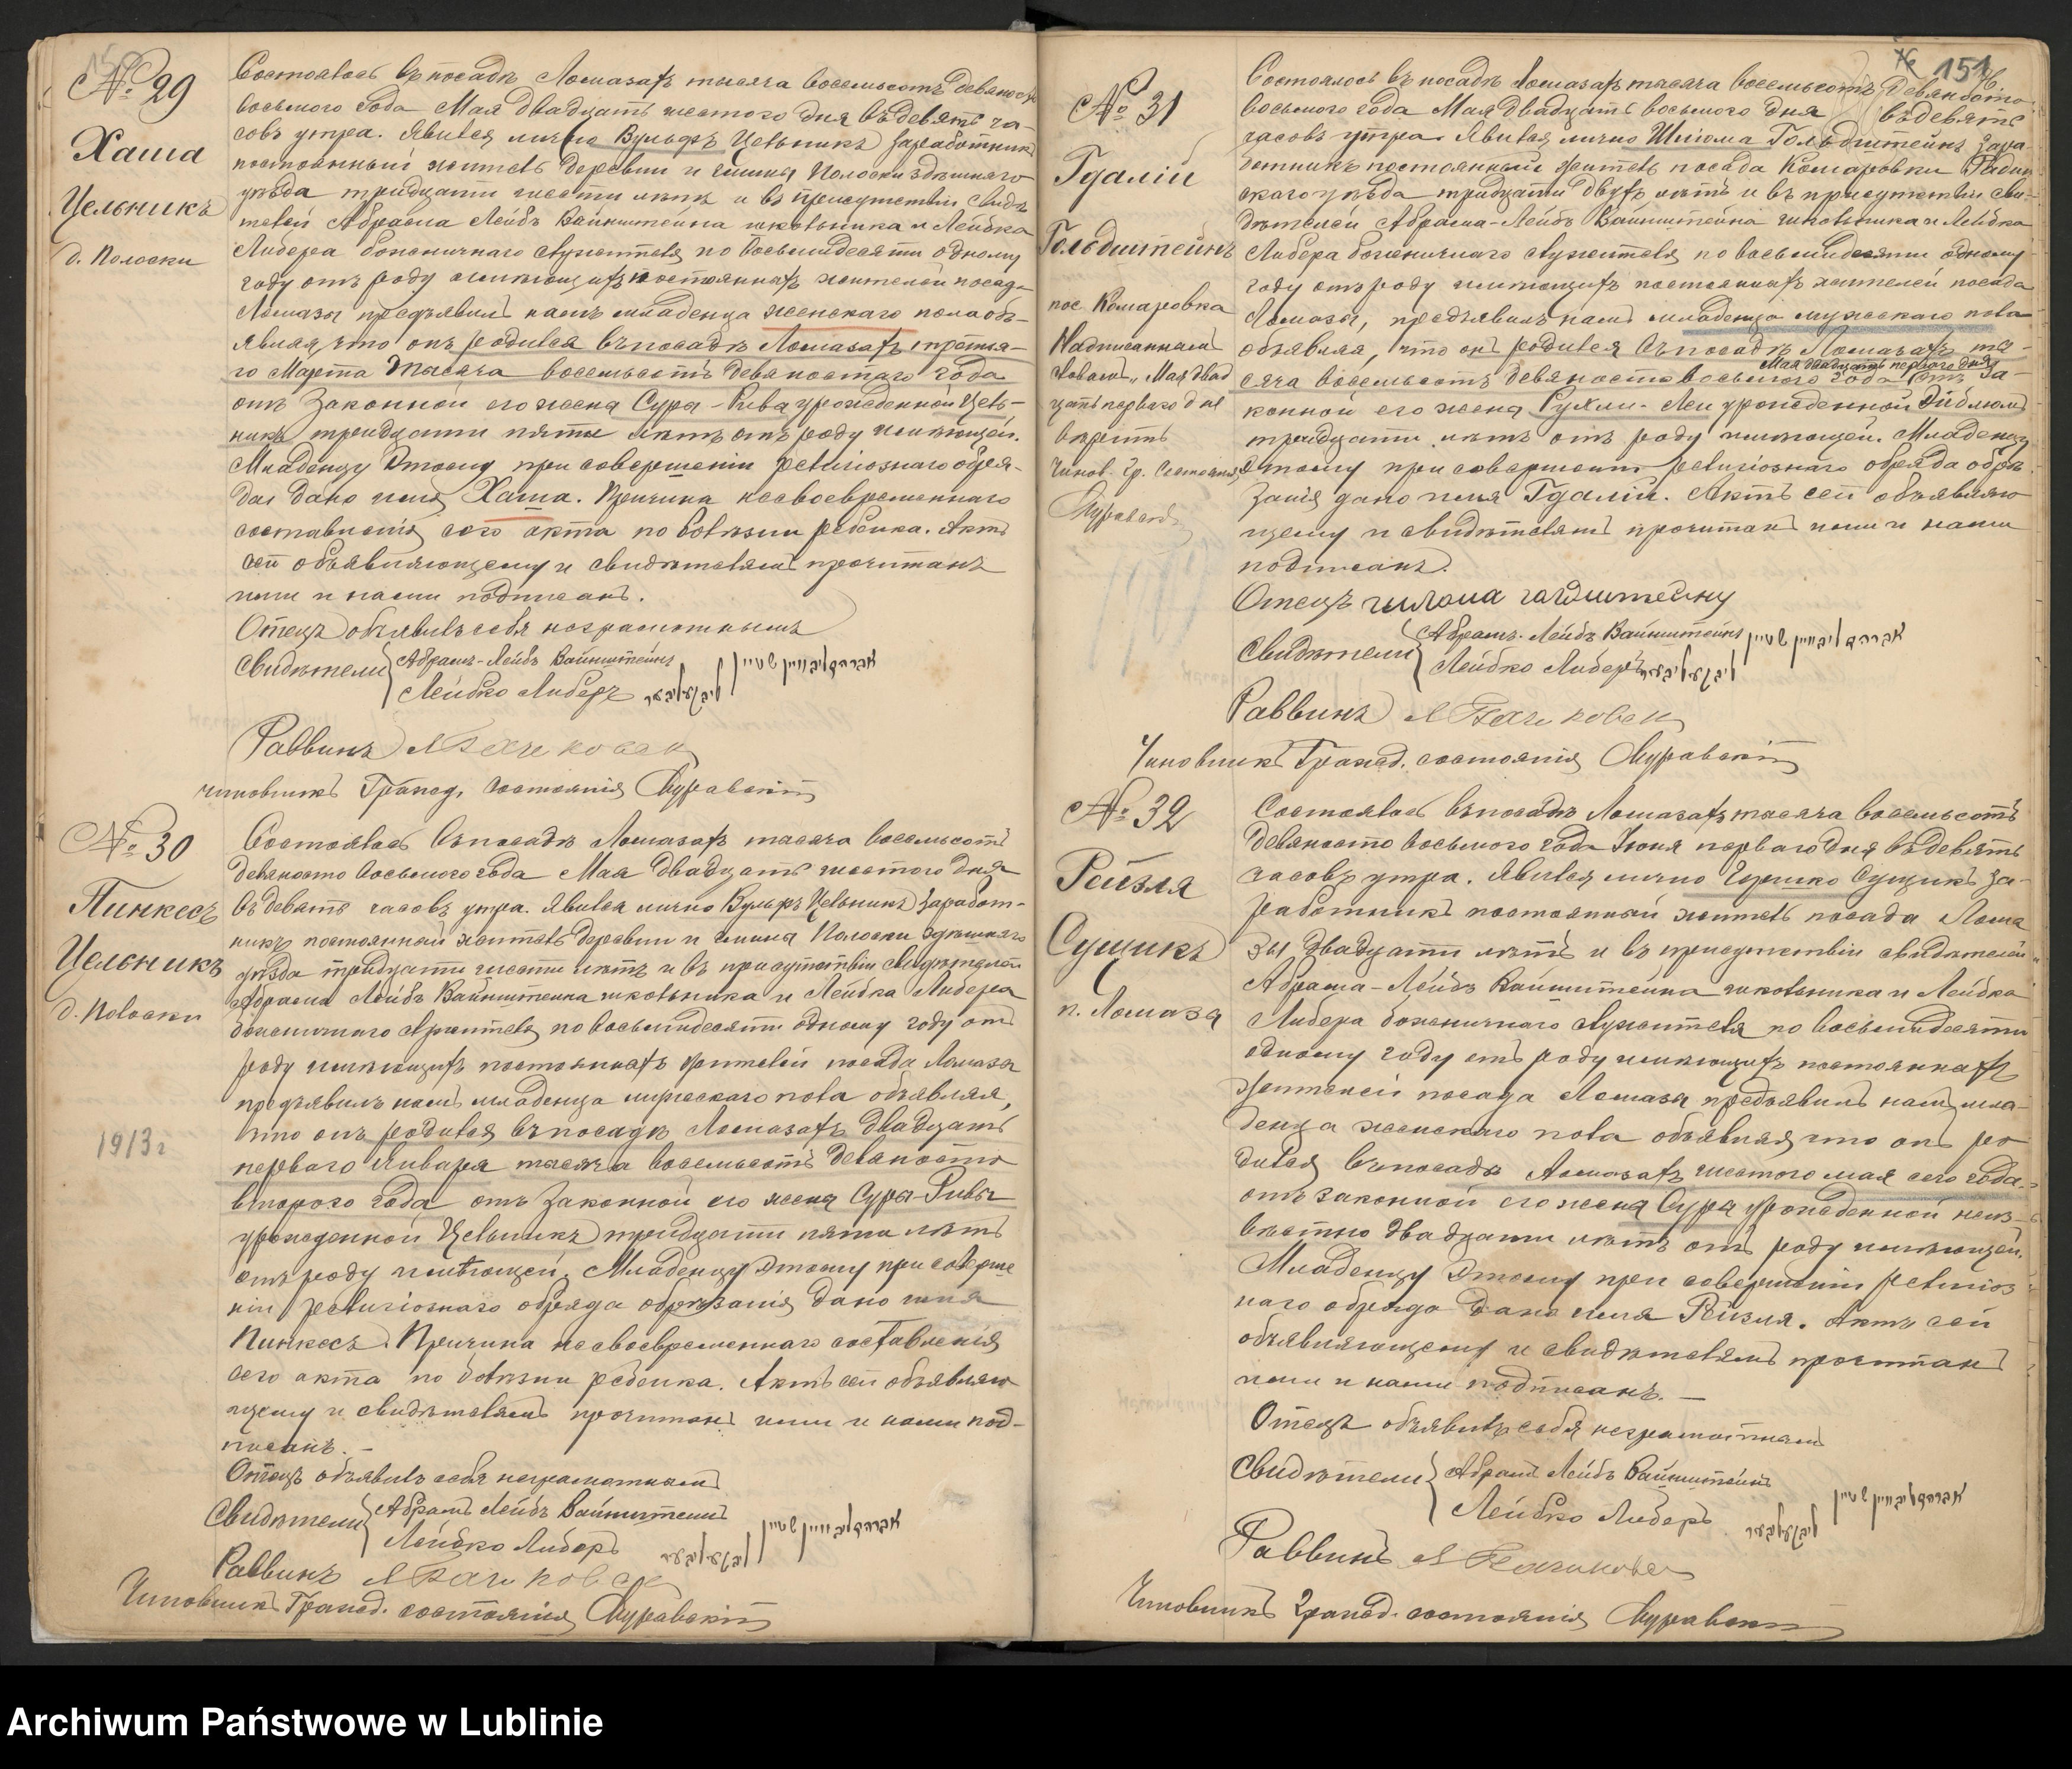 150
№ 29
Хаша
Цельникъ
д. Полоски
Состоялось въ посадѣ Ломазахъ тысяча восемьсотъ девяносто
восьмого года Мая двадцать шестого дня въ девять ча-
совъ утра. Явился лично Вульфъ Цельникъ заработникъ
постоянный житель деревни и гмины Полоски здѣшняго
уѣзда тридцати шести лѣтъ и въ присутствіи свидѣ
телей Абрама Лейбъ Вайнштейна школьника и Лейбка
Либера божничнаго служителя по восьмидесяти одному
году отъ роду имѣющихъ постоянныхъ жителей посада
Ломазы предъявилъ намъ младенца женскаго пола объ-
являя, что онъ родился въ посадѣ Ломазахъ третья-
го Марта тысяча восемьсотъ девяностаго года
отъ законной его жены Сура-Рива урожденной Цель-
никъ тридцати пяти лѣтъ отъ роду имѣющей.
Младенцу этому при совершеніи религіознаго обря-
да дано имя Хаша. Причина несвоевременнаго
составленія сего акта по болѣзни ребенка. Актъ
сей объявляющему и свидѣтелямъ прочитанъ
ими и нами подписанъ.
Отецъ объявилъ себя неграмотнымъ
Свидѣтели Абрамъ-Лейбъ Вайнштейнъ אברהם ליב וויין שטיין
Лейбко Либеръ ליבקע ליבער
Раввинъ
чиновникъ Гражд. состоянія Муравскій
№ 30
Пинкесъ
Цельникъ
д. Полоски
1913 г
Состоялось въ посадѣ Ломазахъ тысяча восемьсотъ
девяносто восьмого года Мая двадцать шестого дня
въ девять часовъ утра. Явился лично Вульфъ Цельникъ заработ-
никъ постоянный житель деревни и гмина Полоски здѣшняго
уѣзда тридцати шести лѣтъ и въ присутствіи свидѣтелей
Абрама Лейбъ Вайнштейна школьника и Лейбка Либера
божничнаго служителя по восьмидесяти одному году отъ
роду имѣющихъ постоянныхъ жителей посада Ломаза
предъявилъ намъ младенца мужескаго пола объявляя,
что онъ родился въ посадѣ Ломазахъ двадцать
перваго Января тысяча восемьсотъ девяносто
второго года отъ законной его жены Суры-Ривы
урожденной Цельникъ тридцати пяти лѣтъ
отъ роду имѣющей. Младенцу этому при соверше
ніи религіознаго обряда обрѣзанія дано имя
Пинкесъ. Причина несвоевременнаго составленія
сего акта по болѣзни ребенка. Актъ сей объявляю
щему и свидѣтелямъ прочитанъ ими и нами под-
писанъ. –
Отецъ объявилъ себя неграмотнымъ
Свидѣтели Абрамъ Лейбъ Вайнштейнъ אברהם ליב וויין שטיין
Лейбко Либеръ ליבקע ליבער
Раввинъ
Чиновникъ Гражд. состоянія Муравскій
151
№ 31
Гдалій
Гольдштейнъ
пос. Комаровка
Надписаннымъ
словамъ „Мая двад
цать перваго дня
вѣрить
Чинов. Гр. Состоянія
Муравскій
Состоялось въ посадѣ Ломазахъ тысяча восемьсотъ девяносто
восьмого года Мая двадцать восьмого дня въ девять
часовъ утра. Явился лично Шліома Гольдштейнъ зара-
ботникъ постоянный житель посада Комаровки Радин
скаго уѣзда тридцати двухъ лѣтъ и въ присутствіи сви-
дѣтелей Абрама-Лейбъ Вайнштейна школьника и Лейбка
Либера божничнаго служителя по восьмидесяти одному
году отъ роду имѣющихъ постоянныхъ жителей посада
Ломазы, предъявилъ намъ младенца мужескаго пола
объявляя, что онъ родился въ посадѣ Ломазахъ ты-
Мая двадцать перваго дня
сяча восемьсотъ девяносто восьмого года отъ за-
конной его жены Рухли-Леи урожденной
тридцати лѣтъ отъ роду имѣющей. Младенцу
этому при совершеніи религіознаго обряда обрѣ
занія дано имя Гдалій. Актъ сей объявляю
щему и свидѣтелямъ прочитанъ ими и нами
подписанъ.
Отецъ
Свидѣтели Абрамъ-Лейбъ Вайнштейнъ אברהם ליב וויין שטיין
Лейбко Либеръ ליבקע ליבער
Раввинъ
Чиновникъ Гражд. состоянія Муравскій
№ 32
Рейзля
Сущикъ
п. Ломаза
Состоялось въ посадѣ Ломазахъ тысяча восемьсотъ
девяносто восьмого года Іюня перваго дня въ девять
часовъ утра. Явился лично Гершко Сущикъ за-
работникъ постоянный житель посада Лома
зы двадцати лѣтъ и въ присутствіи свидѣтелей
Абрама-Лейбъ Вайнштейна школьника и Лейбка
Либера божничнаго служителя по восьмидесяти
одному году отъ роду имѣющихъ постоянныхъ
жителей посада Ломазы предъявилъ намъ мла-
денца женскаго пола объявляя что онъ ро
дился въ посадѣ Ломазахъ шестого мая сего года
отъ законной его жены Сура урожденной неиз-
вѣстно двадцати лѣтъ отъ роду имѣющей.
Младенцу этому при совершеніи религіоз
наго обряда дано имя Рейзля. Актъ сей
объявляющему и свидѣтелямъ прочитанъ
ими и нами подписанъ. –
Отецъ объявилъ себя неграмотнымъ
Свидѣтели Абрамъ Лейбъ Вайнштейнъ אברהם ליב וויין שטיין
Лейбко Либеръ ליבקע ליבער
Раввинъ
Чиновникъ Гражд. состоянія Муравскій
Archiwum Państwowe w Lublinie